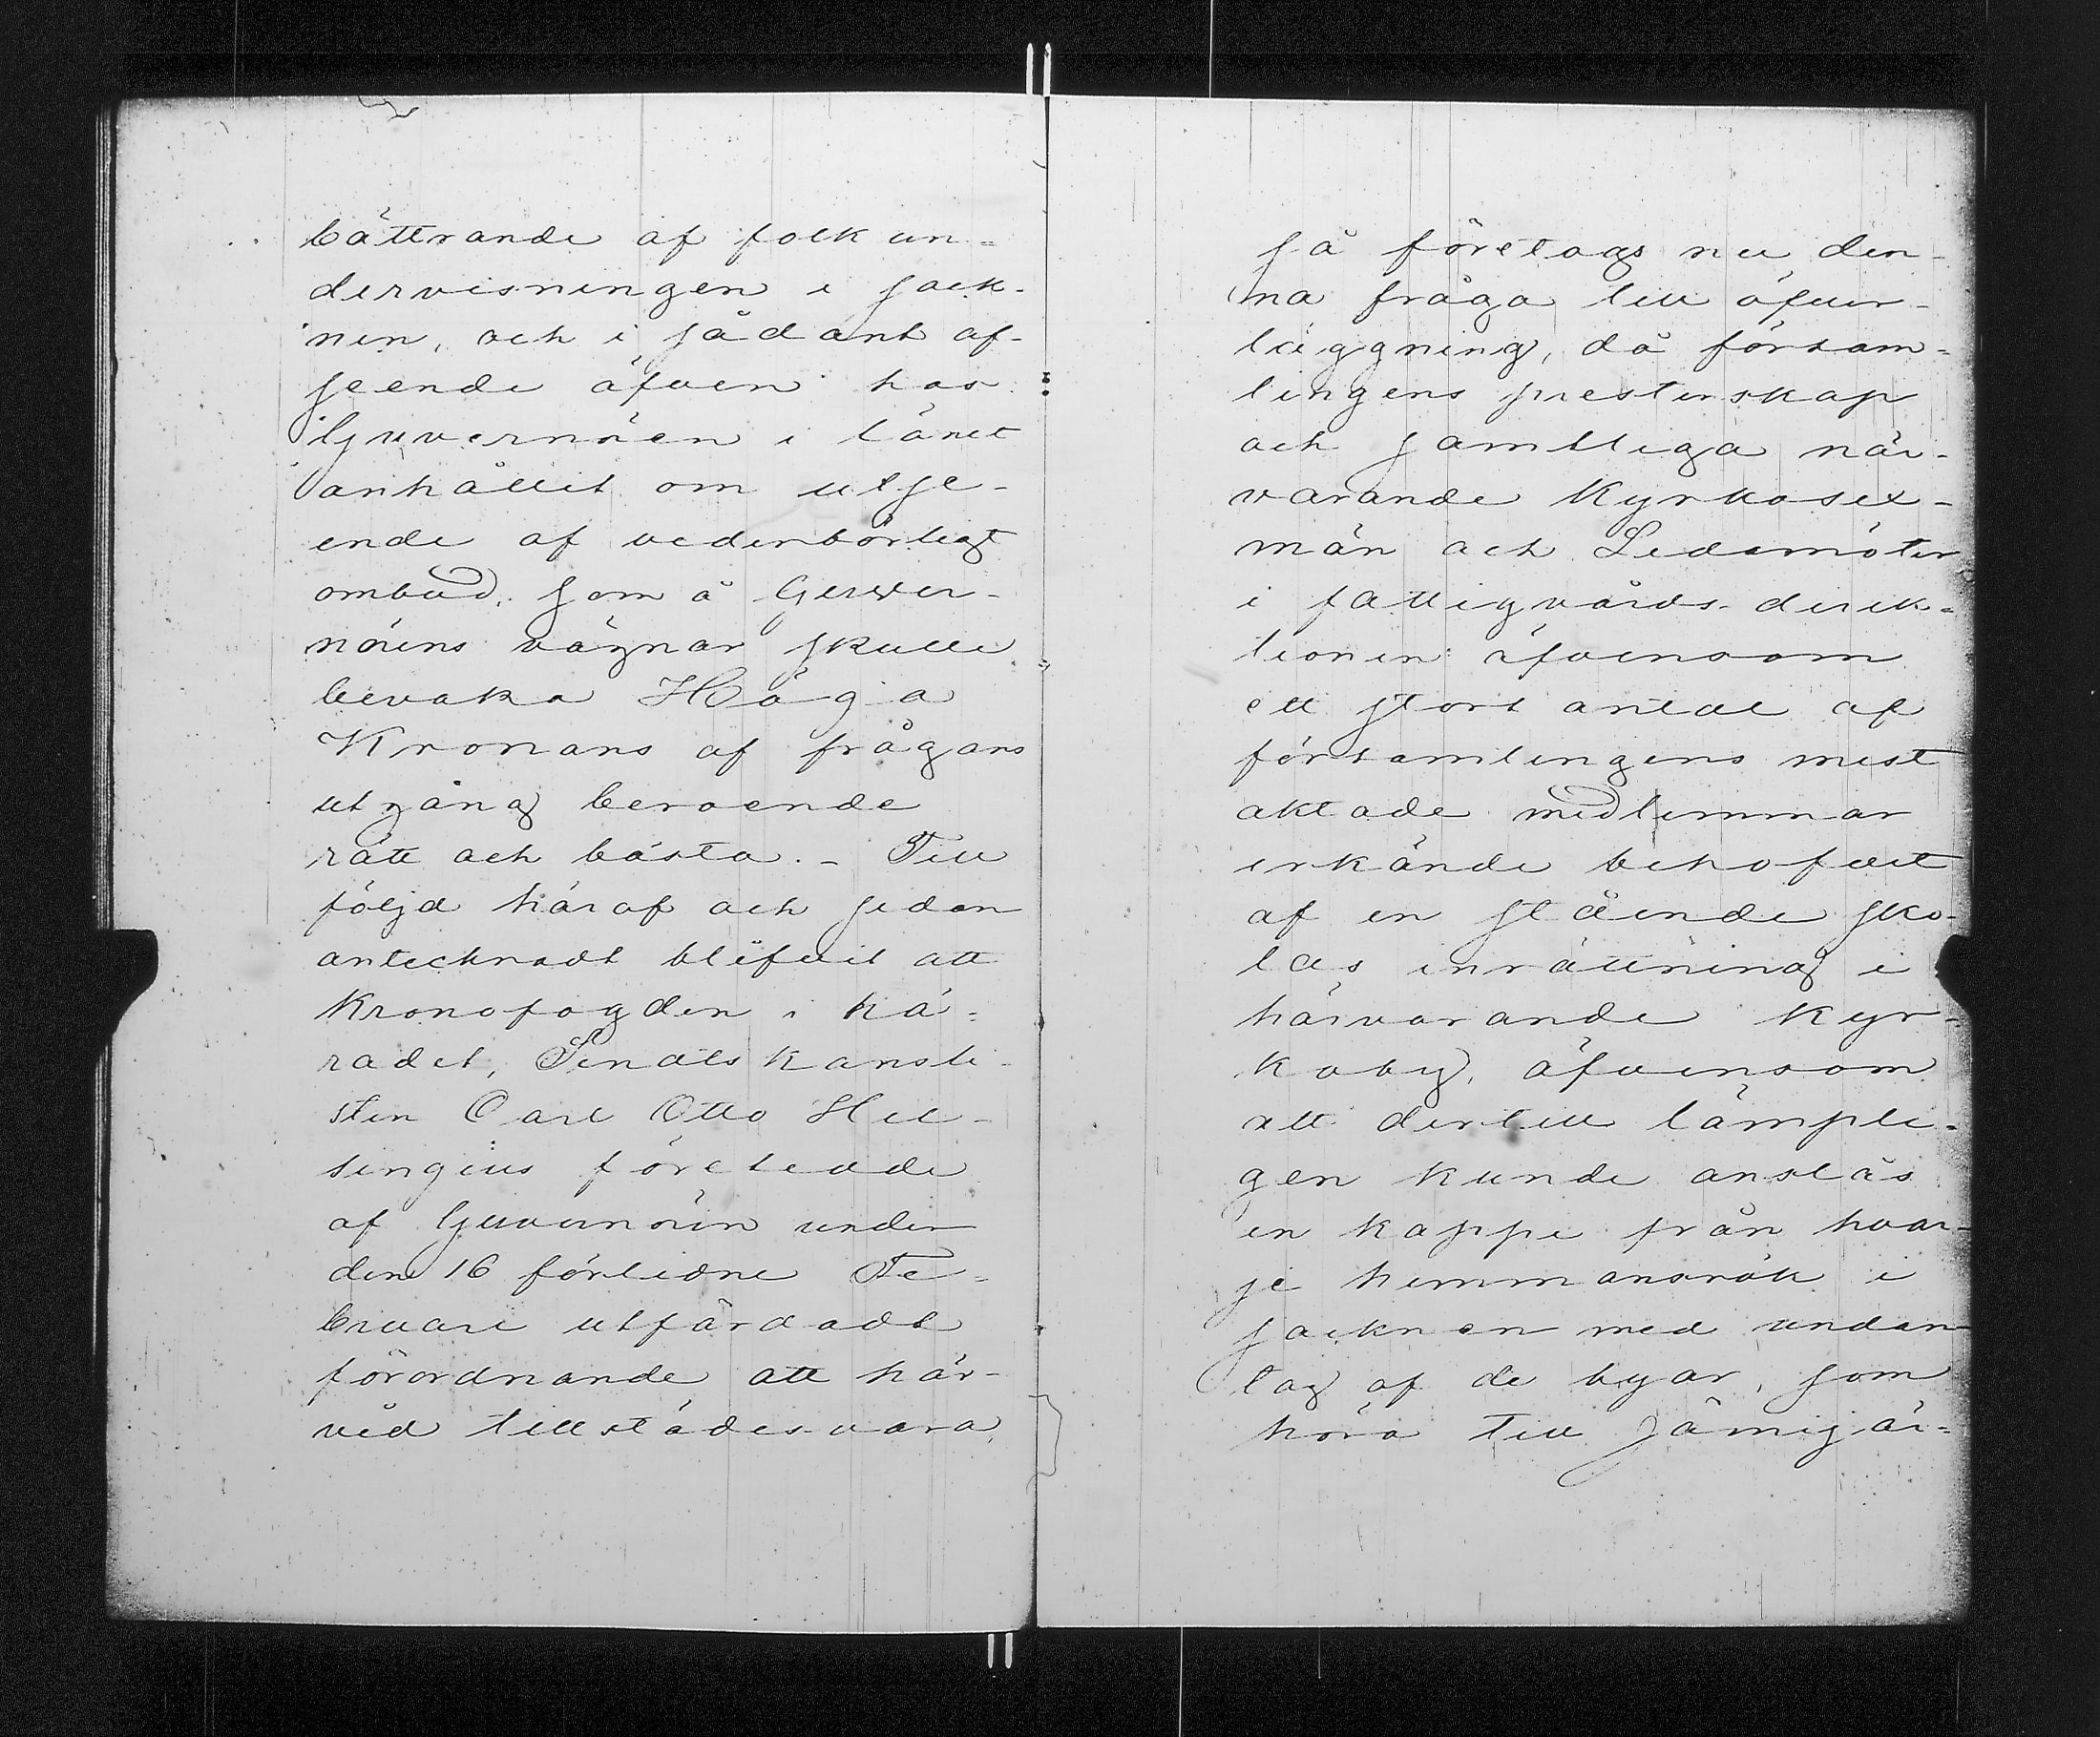 bättrande af folkun-
dervisningen i sock-
nen, och i sådant af-
seende äfven hos
Guvernören i länet
anhållit om utse-
ende af vederbörligt
ombud, som å Guver-
nörens vägnar skulle
bevaka Höga
Kronans af frågans
utgång beroende
rätt och bästa. – Till
följd häraf och sedan
antecknadt blifvit att
Kronofogden i hä-
radet, Senatskansli-
sten Carl Otto Hel-
singius företedde
af Guvernören under
den 16 förlidne Fe-
bruari utfärdadt
förordnande att här-
vid tillstädesvara,
så företogs nu den-
na fråga till öfver-
läggning, då försam-
lingens presterskap
och samtliga när-
varande Kyrkosex-
män och Ledamöter
i fattigvårds-direk-
tionen äfvensom
ett stort antal af
församlingens mest
aktade medlemmar
erkände behofvet
af en stående sko-
las inrättning i
härvarande Kyr-
koby, äfvensom
att dertill lämpli-
gen kunde anslås
en kappe från hvar-
je hemmansrök i
socknen med undan-
tag af de byar, som
höra till Jämijär-